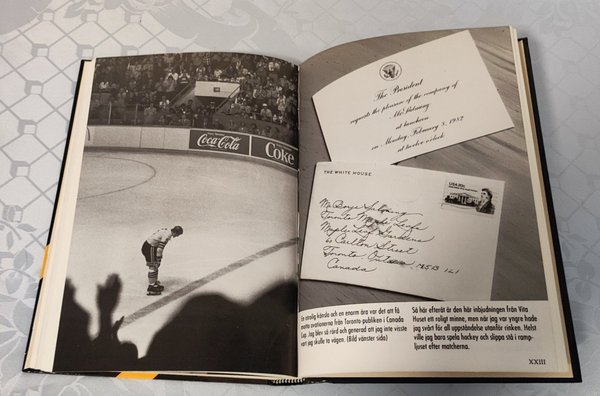 Coca-Cola
Coke
En otrolig känsla och en enorm ära var det att få
motta ovationerna från Toronto-publiken i Canada
Cup. Jag blev så rörd och generad att jag inte visste
vart jag skulle ta vägen. (Bild vänster sida)
The President
requests the pleasure of the company of
Mr. Salming
at luncheon
on Monday, February 8, 1982
at twelve o'clock
THE WHITE HOUSE
USA 20c
Mr. Borje Salming
Toronto Maple Leafs
Maple Leaf Gardens
60 Carlton Street
Toronto, Ontario, M5B 1L1
Canada
Så här efteråt är den här inbjudningen från Vita
Huset ett roligt minne, men när jag var yngre hade
jag svårt för all uppståndelse utanför rinken. Helst
ville jag bara spela hockey och slippa stå i ramp-
ljuset efter matcherna.
XXIII